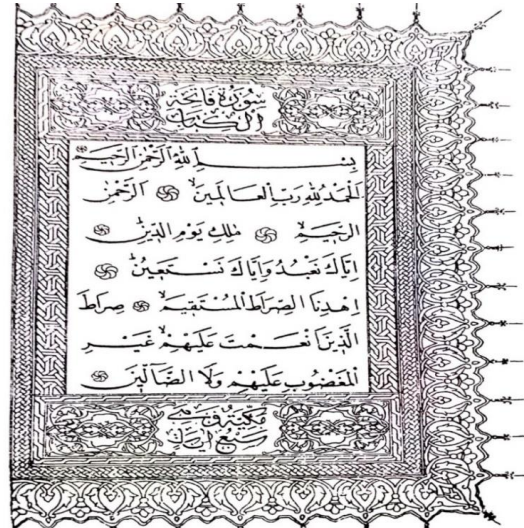 سُورَةُ فَاتِحَةِ
الْكِتَابِ
بِسْمِ اللهِ الرَّحْمٰنِ الرَّحِيمِ
اَلْحَمْدُ لِلّٰهِ رَبِّ الْعَالَمِينَ الرَّحْمٰنِ
الرَّحِيمِ مٰلِكِ يَوْمِ الدِّينِ
اِيَّاكَ نَعْبُدُ وَاِيَّاكَ نَسْتَعِينُ
اِهْدِنَا الصِّرَاطَ الْمُسْتَقِيمَ صِرَاطَ
الَّذِينَ اَنْعَمْتَ عَلَيْهِمْ غَيْرِ
الْمَغْضُوبِ عَلَيْهِمْ وَلَا الضَّالِّينَ
مكية وهي
سبع ايات